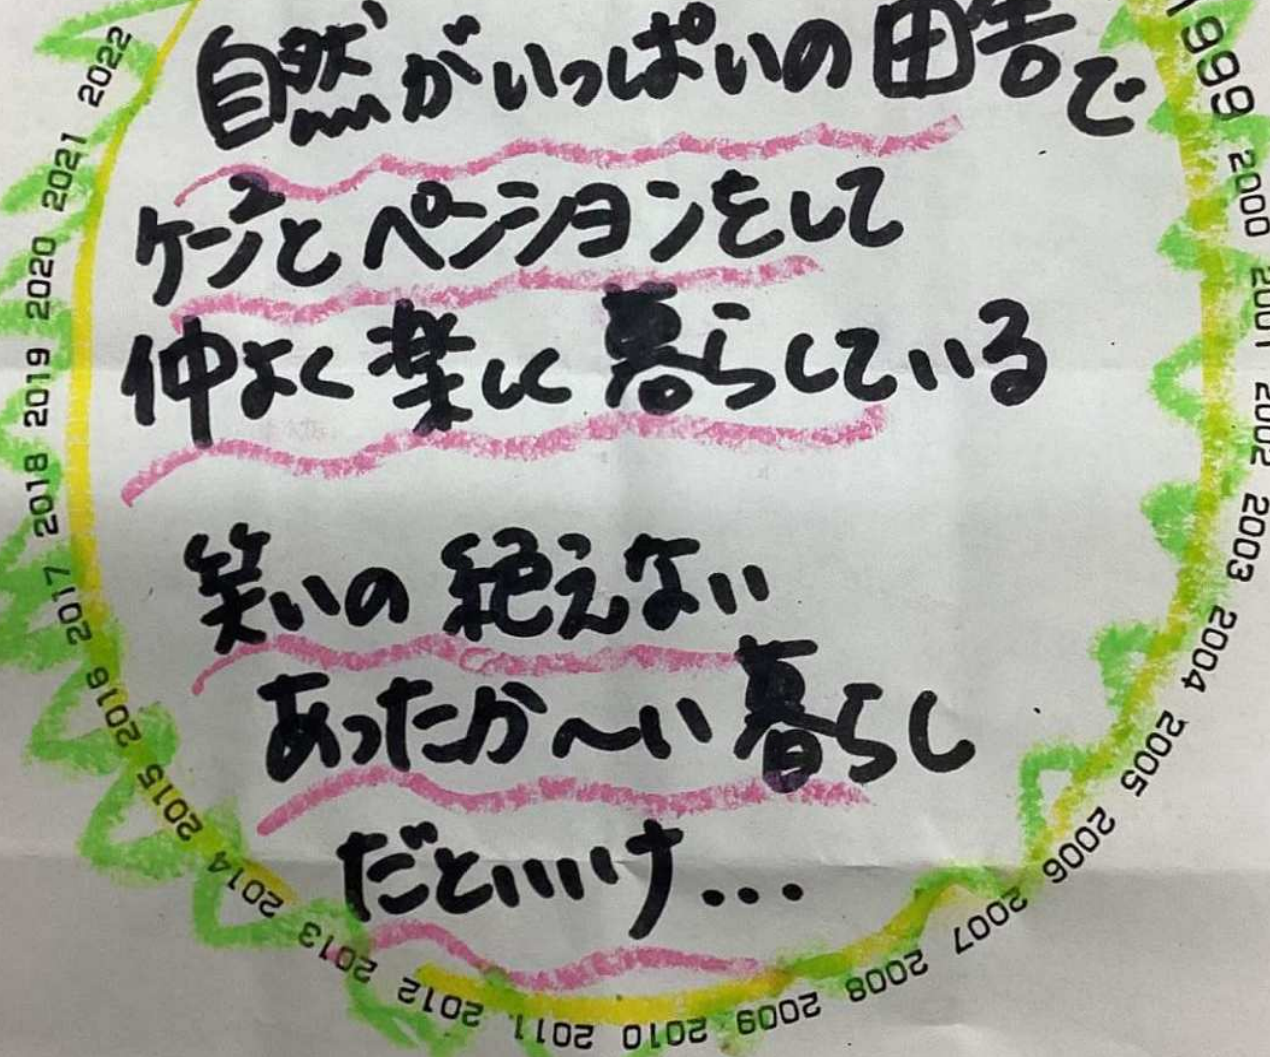 自然がいっぱいの田舎で
ケンとペンションをして
仲よく楽しく暮らしている
笑いの絶えない
あったか〜い暮らし
だといいけど...
1999
2000
2001
2002
2003
2004
2005
2006
2007
2008
2009
2010
2011
2012
2013
2014
2015
2016
2017
2018
2019
2020
2021
2022